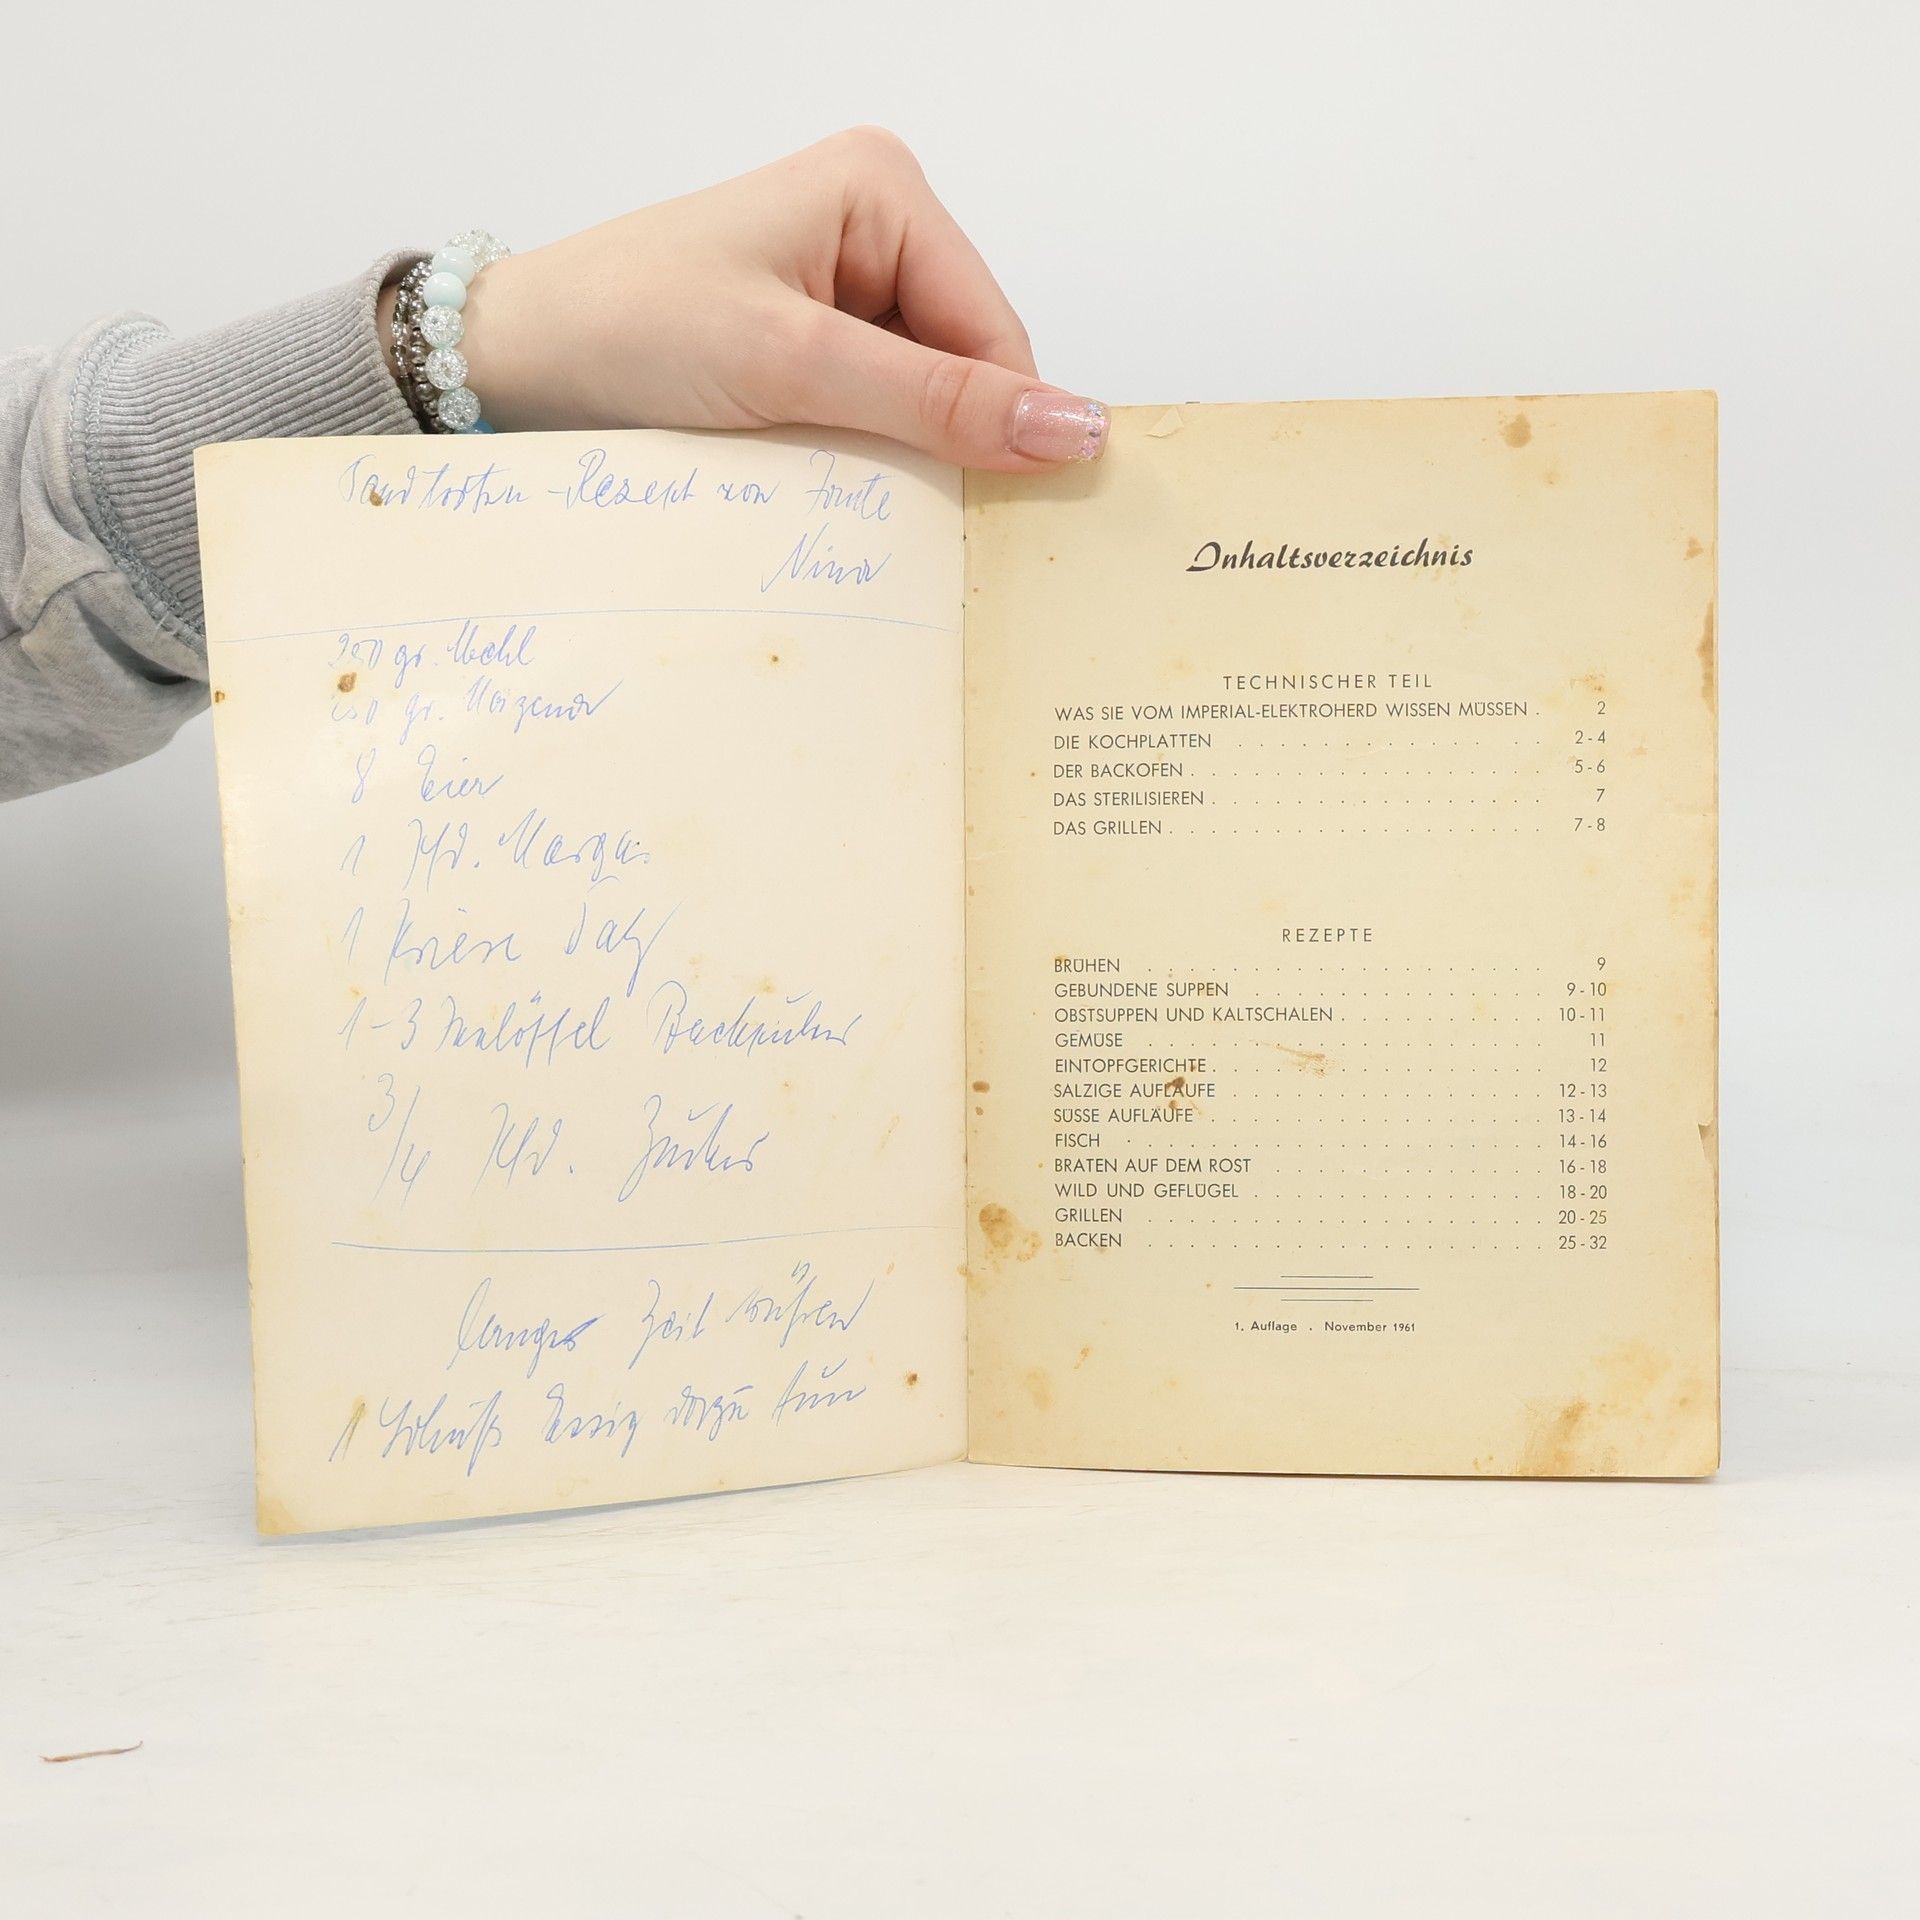 Sandtorten-Rezept von Tante
Nina
250 gr. Mehl
250 gr. Maizena
8 Eier
1 Pfd. Marga.
1 Priese Salz
1-3 Teelöffel Backpulver
3/4 Pfd. Zucker
lange Zeit rühren
1 Schuß Essig dazu tun
Inhaltsverzeichnis
TECHNISCHER TEIL
WAS SIE VOM IMPERIAL-ELEKTROHERD WISSEN MÜSSEN . 2
DIE KOCHPLATTEN . . . . . . . . . . . . 2-4
DER BACKOFEN . . . . . . . . . . . . . . 5-6
DAS STERILISIEREN . . . . . . . . . . . . . 7
DAS GRILLEN . . . . . . . . . . . . . . . 7-8
REZEPTE
BRÜHEN . . . . . . . . . . . . . . . 9
GEBUNDENE SUPPEN . . . . . . . . . . . 9-10
OBSTSUPPEN UND KALTSCHALEN . . . . . . . . 10-11
GEMÜSE . . . . . . . . . . . . . . . 11
EINTOPFGERICHTE . . . . . . . . . . . . . 12
SALZIGE AUFLÄUFE . . . . . . . . . . . . 12-13
SÜSSE AUFLÄUFE . . . . . . . . . . . . . 13-14
FISCH . . . . . . . . . . . . . . . . 14-16
BRATEN AUF DEM ROST . . . . . . . . . . 16-18
WILD UND GEFLÜGEL . . . . . . . . . . . 18-20
GRILLEN . . . . . . . . . . . . . . . 20-25
BACKEN . . . . . . . . . . . . . . . 25-32
1. Auflage . November 1961